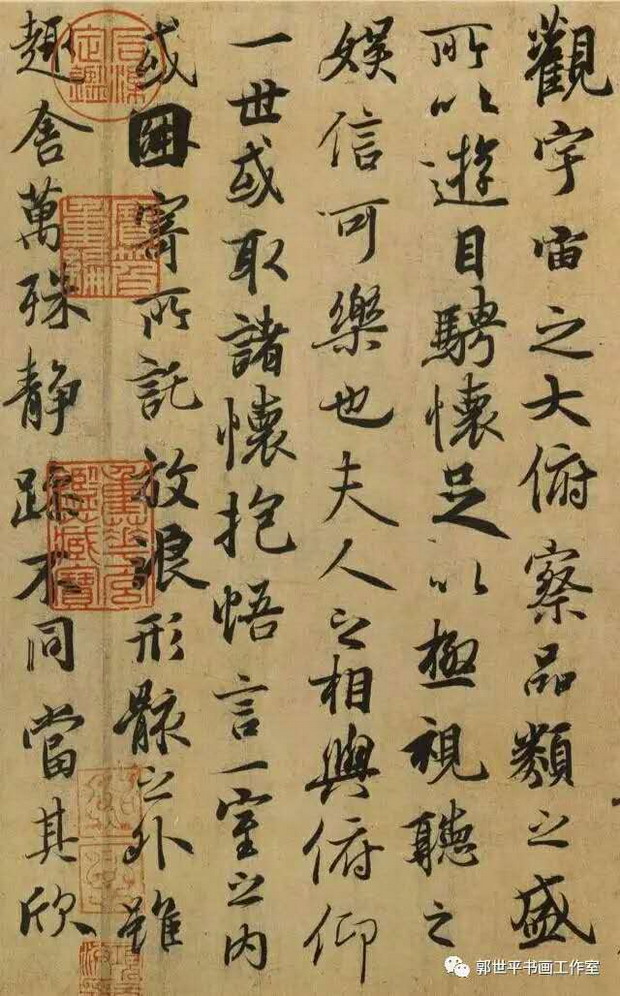 觀宇宙之大俯察品類之盛
所以遊目騁懷足以極視聽之
娛信可樂也夫人之相與俯仰
一世或取諸懷抱悟言一室之内
或因寄所託放浪形骸之外雖
趣舍萬殊静躁不同當其欣
石渠定鑑
寶笈重編
重華宮鑑藏寶
郭世平书画工作室